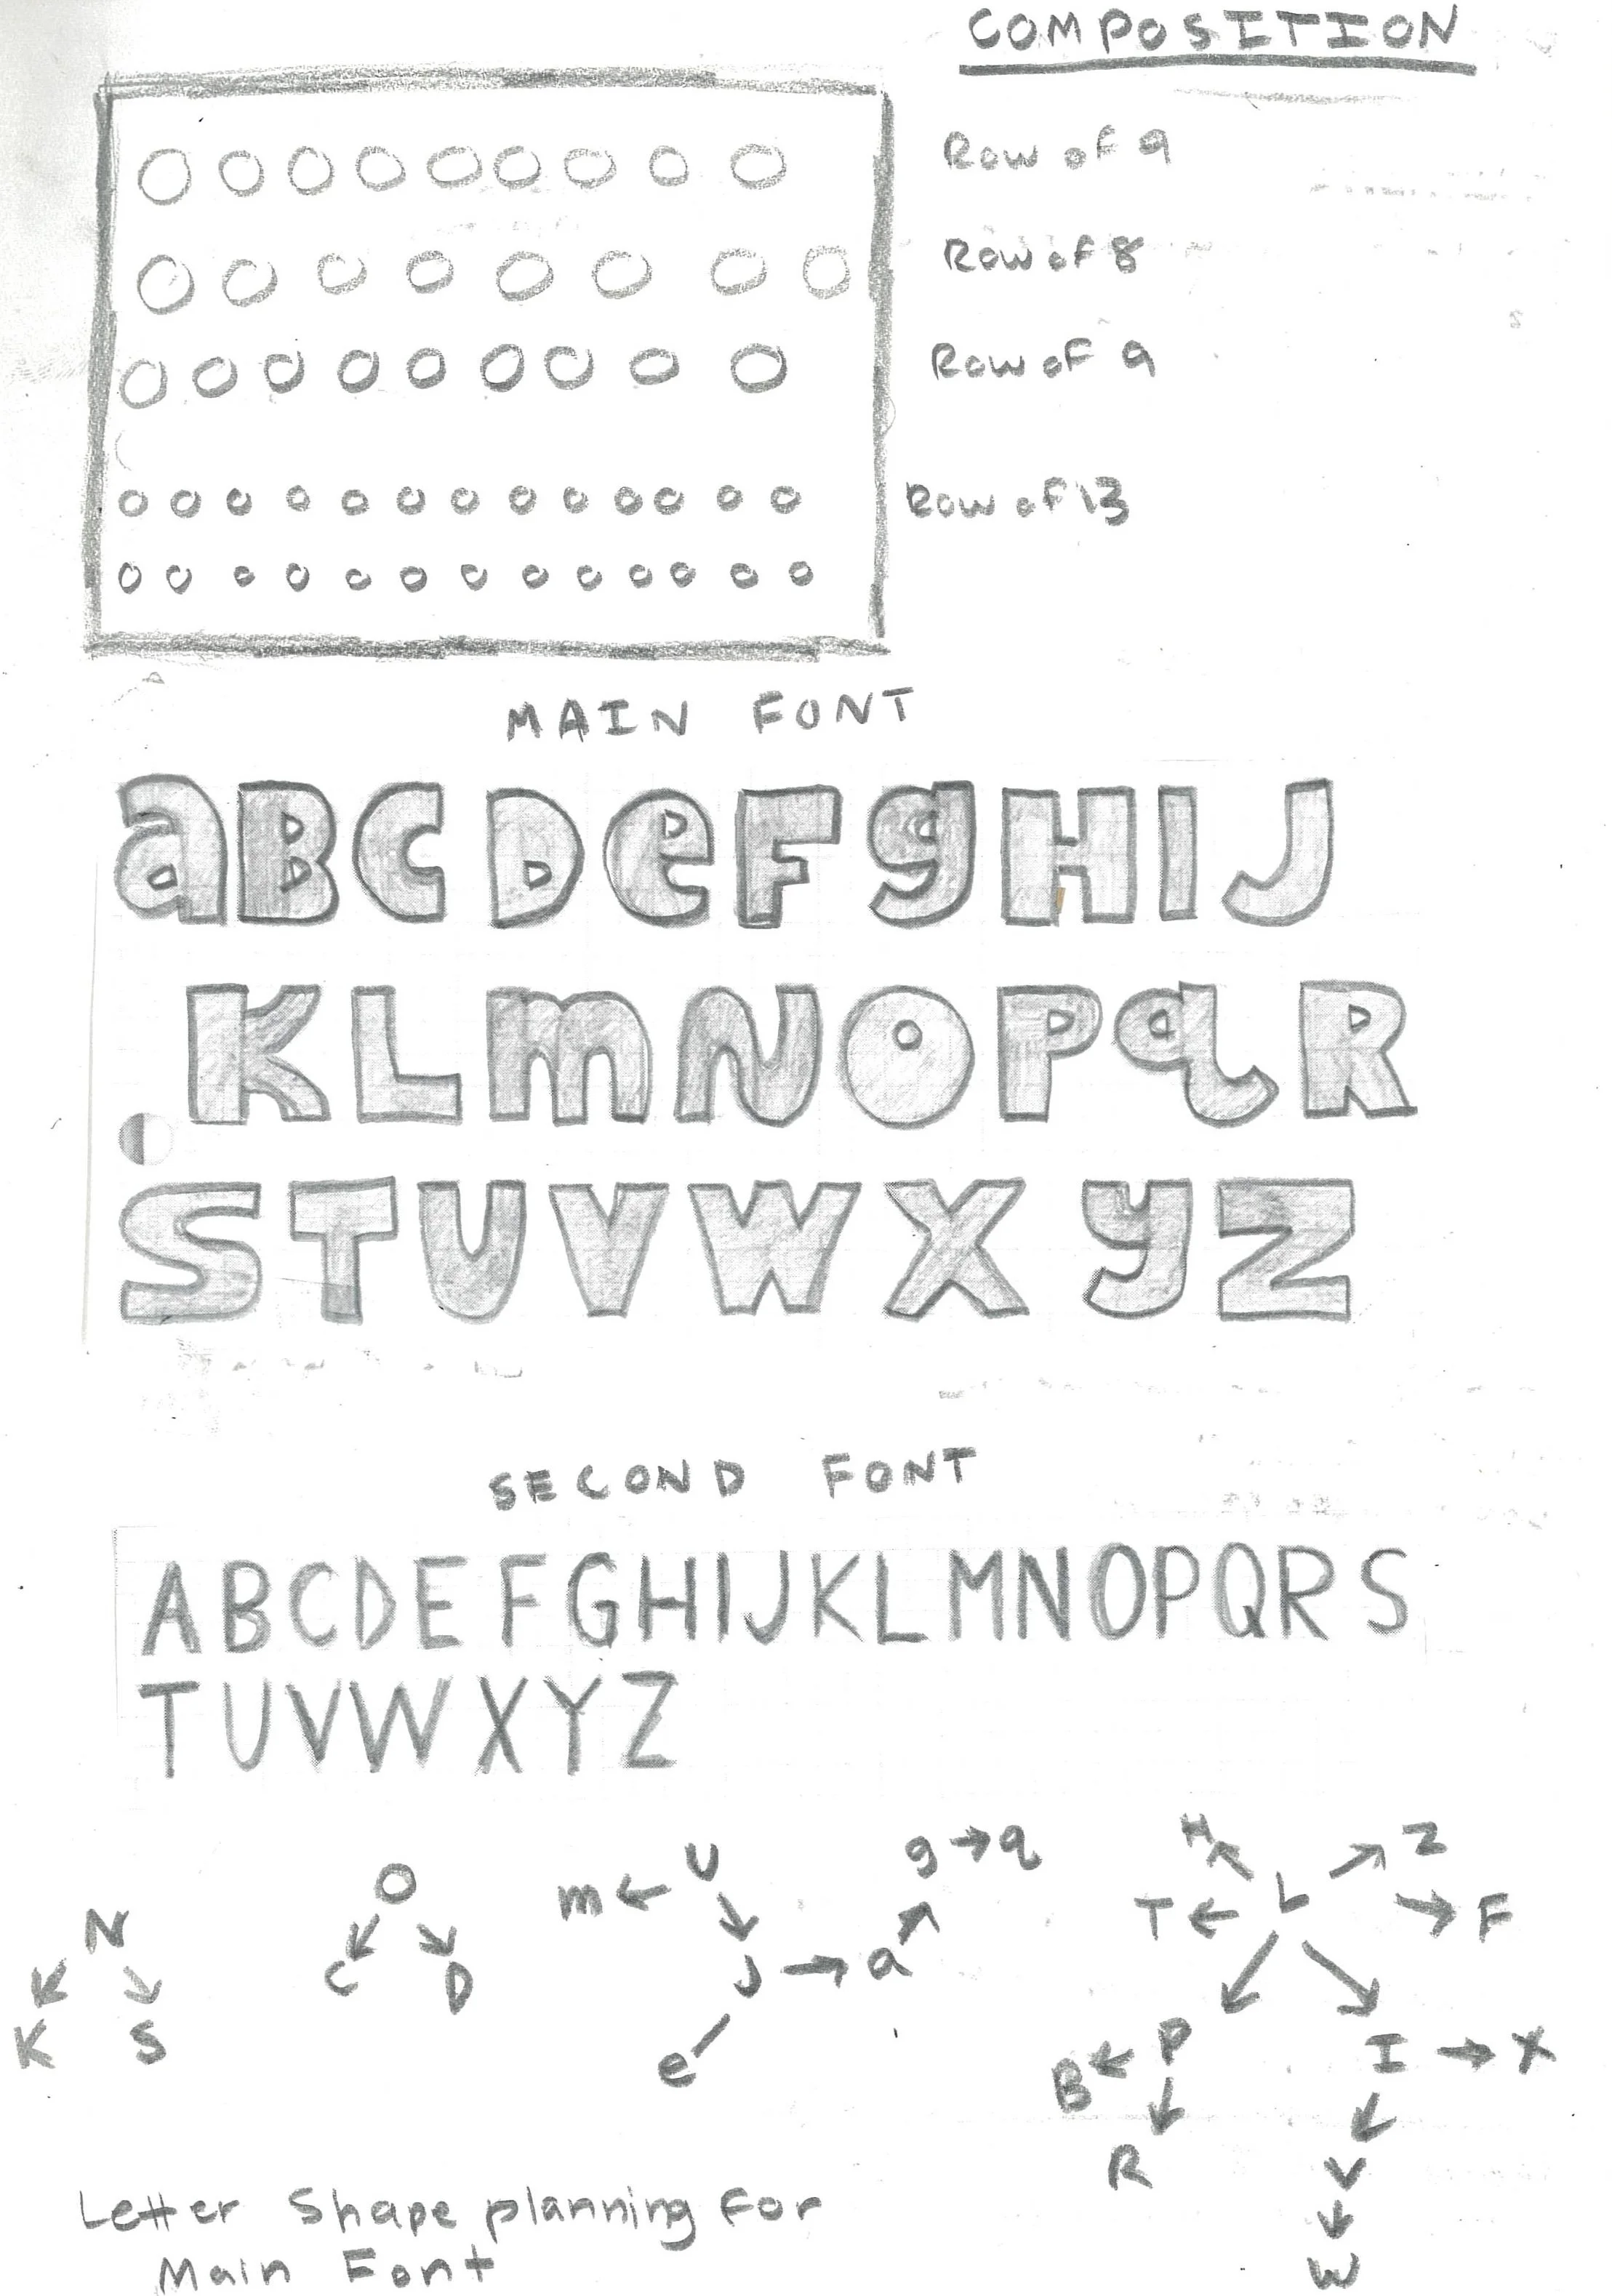 COMPOSITION
Row of 9
Row of 8
Row of 9
Row of 13
MAIN FONT
aBCDeFgHIJ
KLmNOPqR
STUVWXyZ
SECOND FONT
ABCDEFGHIJKLMNOPQRS
TUVWXYZ
N
K S
O
C D
m ← U
J → a
g → q
e
H Z
T ← L → F
B ← P
R
I → X
V
W
Letter Shape planning for
Main Font